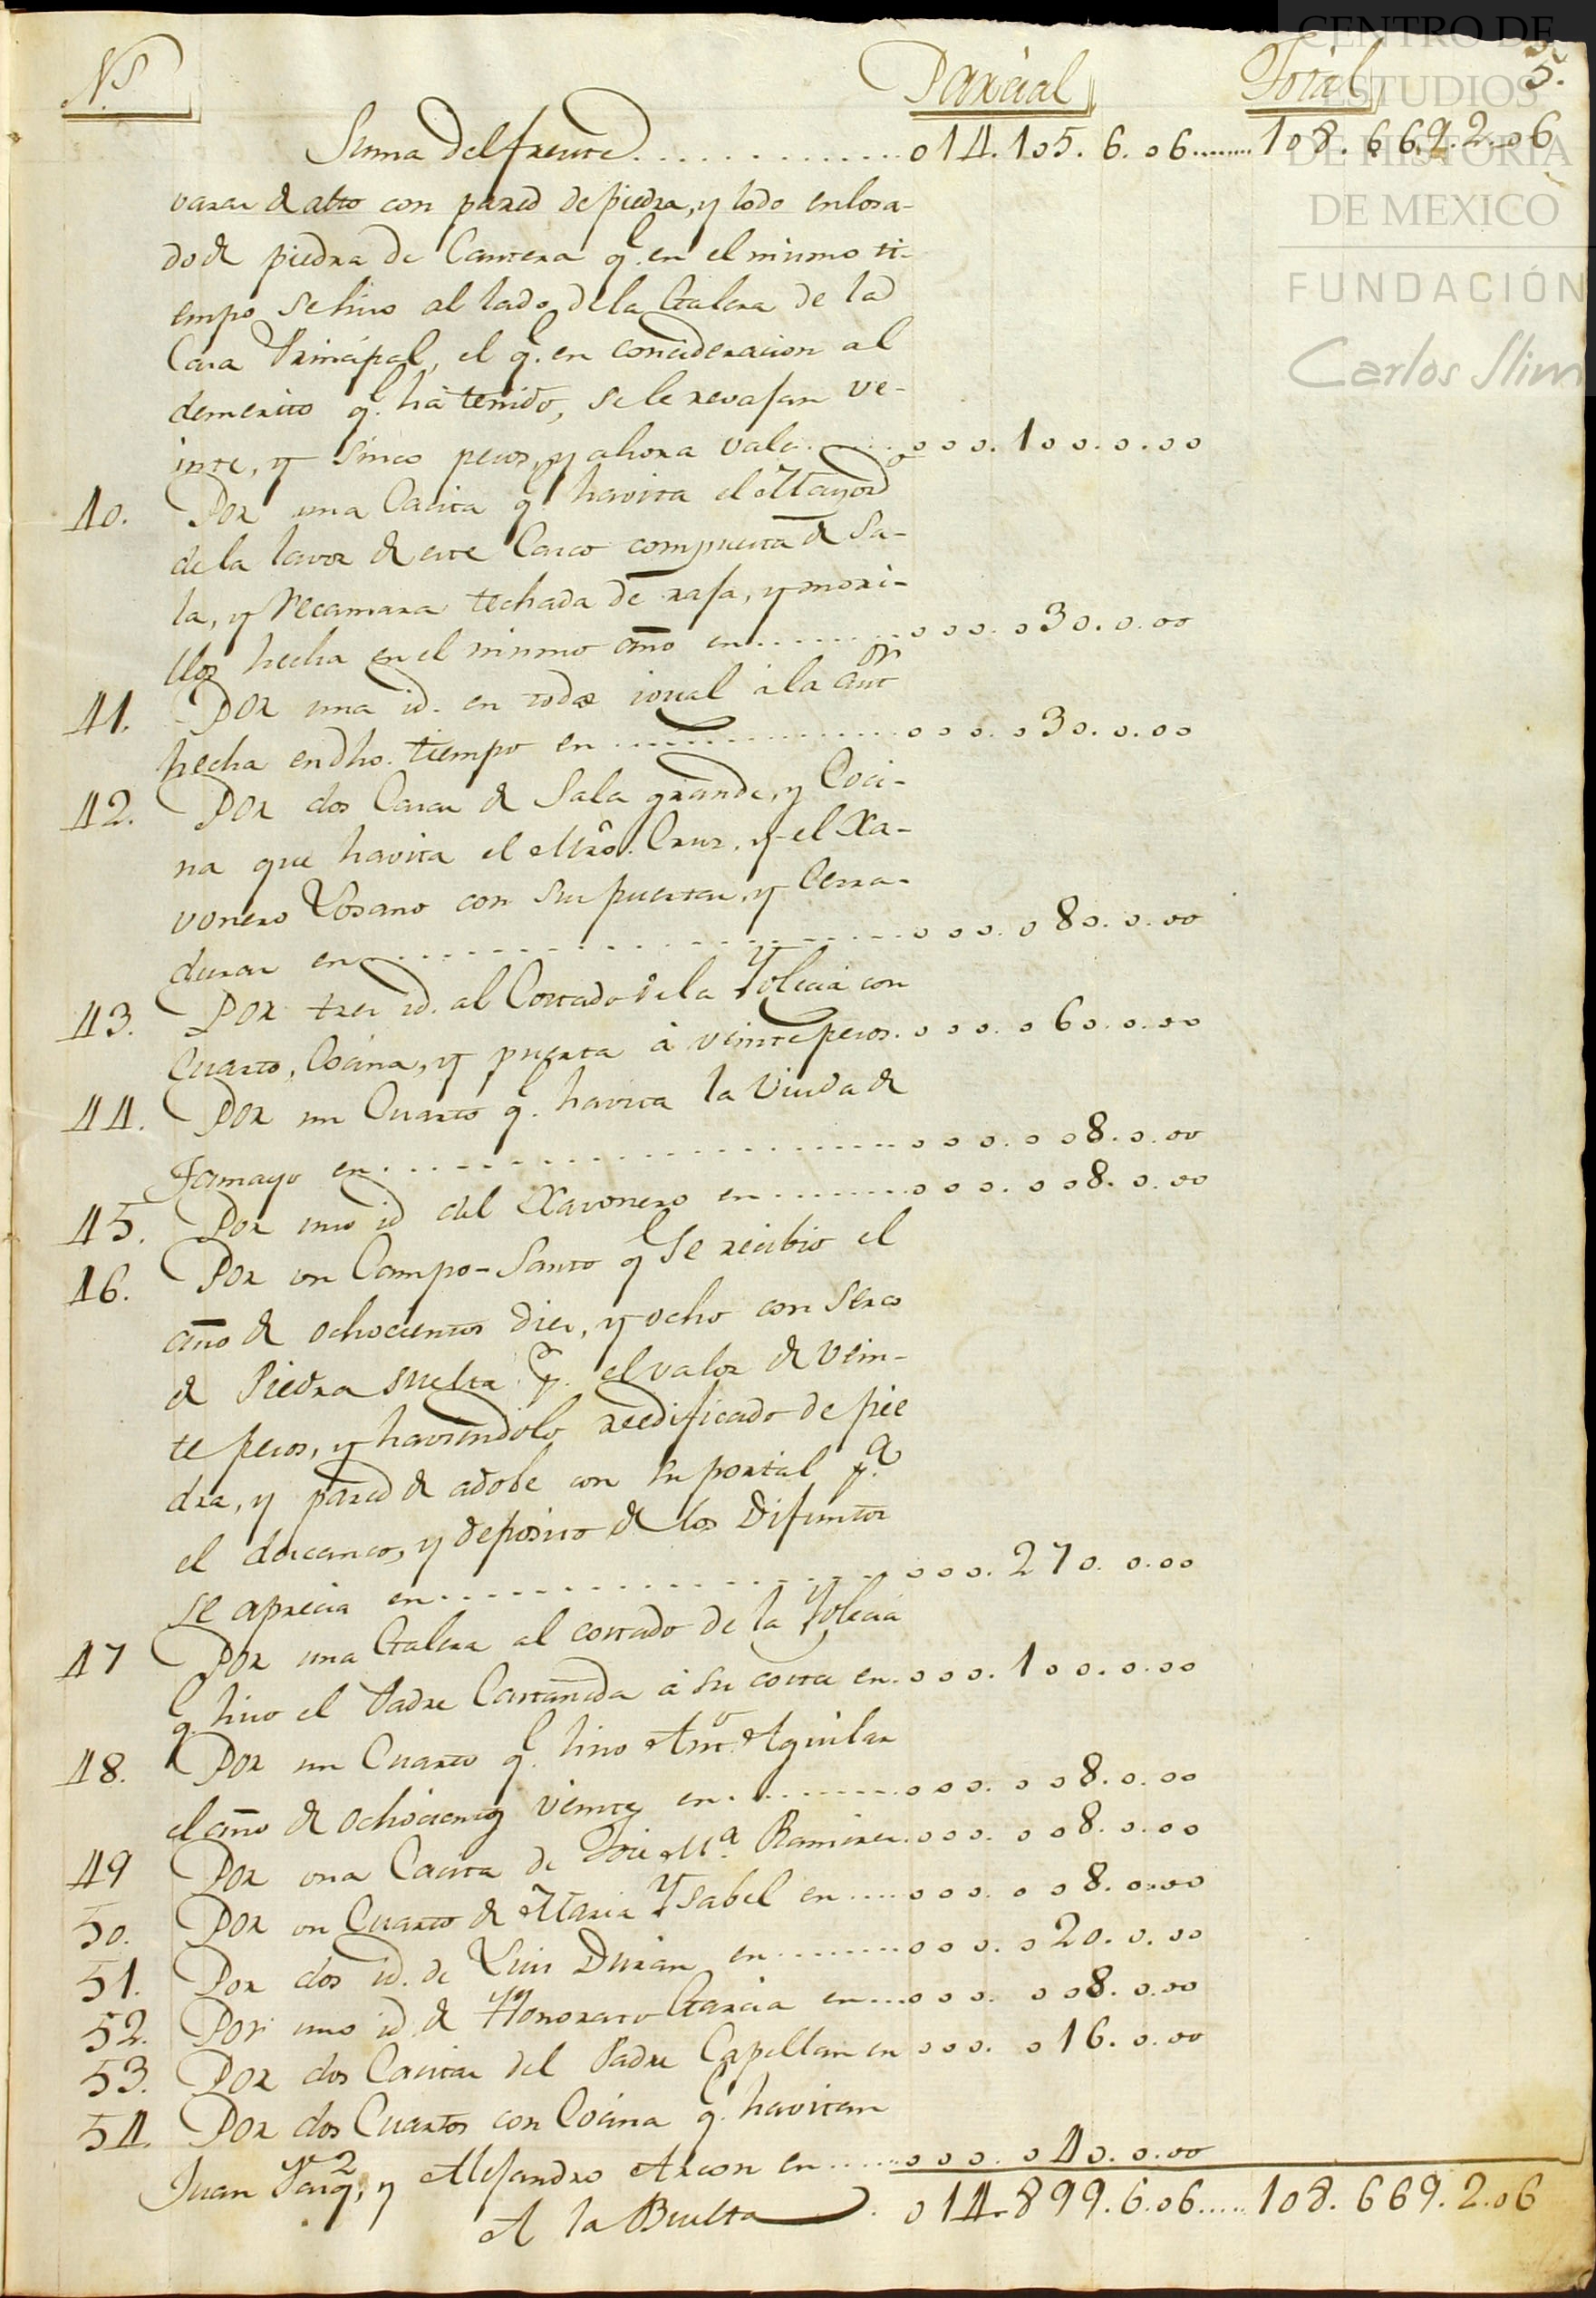 CENTRO DE
ESTUDIOS
DE HISTORIA
DE MEXICO
FUNDACIÓN
Carlos Slim
N.s Parcial Total 5.
Suma del frente.............. 014.105.6.06........108.669.2.06
varas de alto con pared de piedra, y todo enlosa-
do de piedra de Cantera q.e en el mismo ti-
empo se hiso al lado de la Galera de la
Casa Principal, el q.e en concideracion al
demerito q.e há tenido, se le revajan ve-
inte, y sinco pesos, y ahora vale........000.100.0.00
40. Por una Casita q.e havita el Mayord.o
de la lavor de este Casco compuesta de Sa-
la, y Recamara techada de xasa, y mori-
llos hecha en el mismo año en.........000.030.0.00
41. Por una id. en todo igual á la ant.or
hecha en dho. tiempo en................000.030.0.00
42. Por dos Casas de Sala grande, y Coci-
na que havita el Mro. Cruz, y el Xa-
vonero Losano con sus puertas, y Cerra-
duras en................000.080.0.00
43. Por tres id. al Costado de la Yglecia con
Cuarto, Cocina, y puerta á veinte pesos.000.060.0.00
44. Por un Cuarto q.e havita la Viuda de
Tamayo en................000.008.0.00
45. Por uno id del Xavonero en.........000.008.0.00
46. Por un Campo-Santo q.e se recibio el
año de ochocientos dies, y ocho con serco
de Piedra suelta p.r el valor de vein-
te pesos, y haviendolo reedificado de pie
dra, y pared de adobe con su portal p.a
el descanso, y deposito de los Difuntos
se aprecia en................000.270.0.00
47 Por una Galera al costado de la Yglecia
q.e hiso el Padre Castañeda á su costa en.000.100.0.00
48. Por un Cuarto q.e hiso Ant.o Aguilar
el año de ochocientos veinte en..........000.008.0.00
49 Por una Casita de Jose M.a Ramires.000.008.0.00
50. Por un Cuarto de Maria Ysabel en.....000.008.0.00
51. Por dos id. de Luis Duran en.........000.020.0.00
52. Por uno id. de Honorato Garcia en....000.008.0.00
53. Por dos Casitas del Padre Capellan en 000.016.0.00
54. Por dos Cuartos con Cocina q.e havitan
Juan Vasq.z, y Alejandro Arcon en......000.040.0.00
A la Buelta. 014.899.6.06.....108.669.2.06